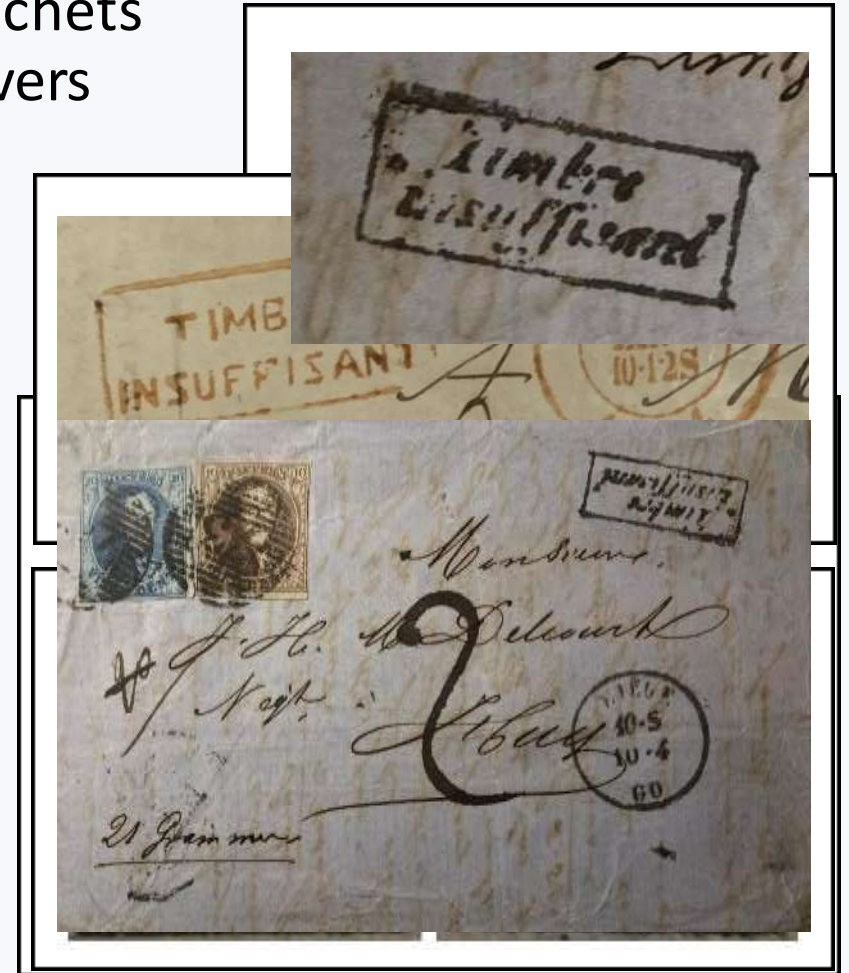 chets
vers
Timbre
insuffisant
TIMB
INSUFFISANT
10·12S
Monsieur
J. H. Delcourt
Negt. à
Huy
LIÉGE
10·S
10·4
60
21 Grammes